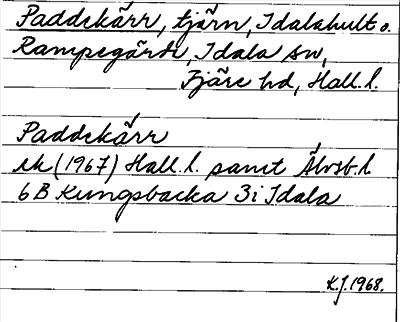 Paddekärr, tjärn, Idalahult o.
Rampegärde, Idala sn,
Fjäre hd, Hall. l.
Paddekärr
ek (1967) Hall. l. samt Älvsb. l
6B Kungsbacka 3i Idala
K.J. 1968.